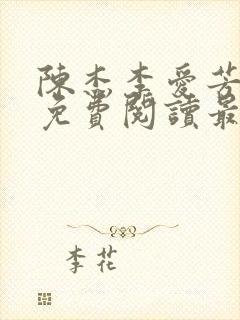 陳杰李愛芳
免費閱讀最
李花